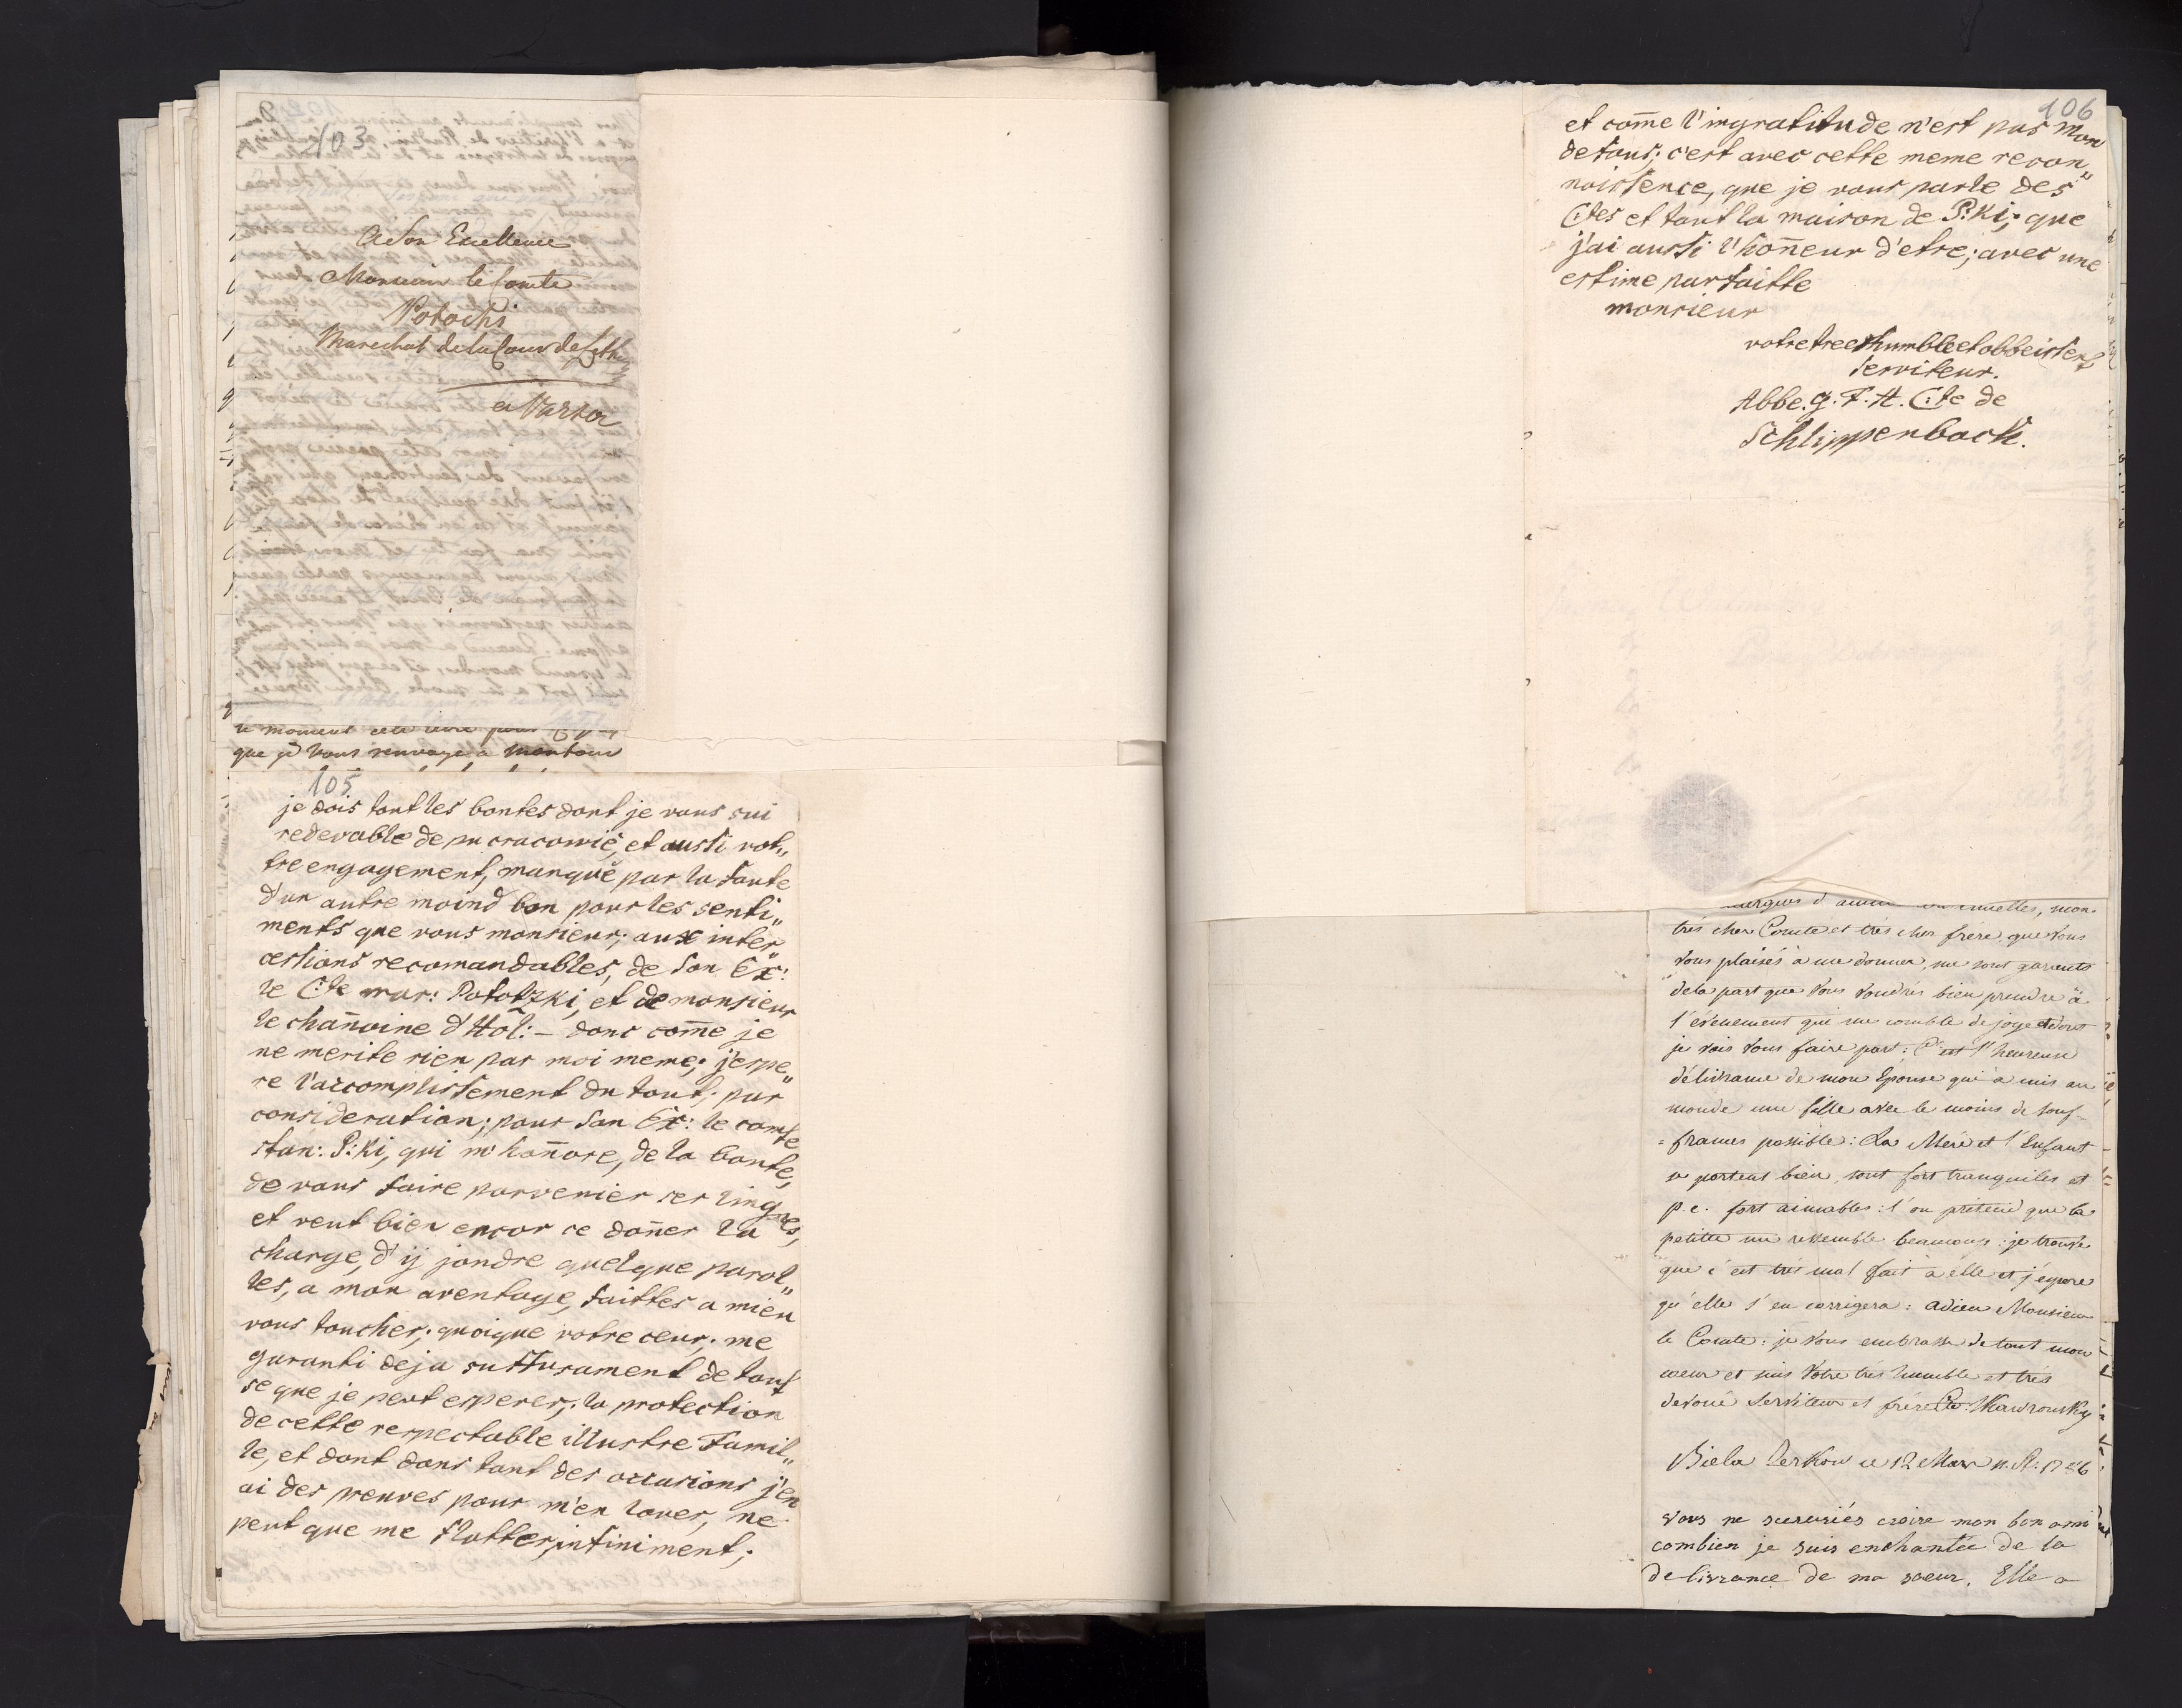 103
A Son Excellence
Monsieur le Comte
Potocki
Marechal de la Cour de Lith
a Varsov
le moment cete letre pour
que je vous renvoye a
105
je dois tout les bontes dont je vous sui
redevable de pu cracowie, et aussi vot„
tre engagement, manquè par la faute
d'un autre moind bon pour les senti„
ments que vous monsieur; aux inter„
cessions recomandables, de Son Ex:
le C:te mar: Pototzki, et de monsieur
le chañoine d'Hol:- donc com̄e je
ne merite rien par moi meme; j'espe„
re l'accomplissement du tout; par
consideration; pour Son Ex: le comte
stan: P:ki, qui m'hañore, de la bonte,
de vous faire parvenier ses lingnes,
et veut bien encor ce doñer la
charge, d'ij jondre quelque parol„
les, a mon aventage, faittes a mieu
vous toucher; quoique votre ceur; me
garanti deja suffusament de tout
se que je peut esperer; la protection
de cette respectable illustre Famil„
le, et dont dans tant des occasions j'en
ai des preuves pour m'en louer, ne
peut que me flatter, infiniment;
106
et com̄e l'ingratitude n'est pas mon
defaus; c'est avec cette meme recon„
noissence, que je vous parle des
C:tes et tout la maison de P:ki; que
j'ai aussi l'hoñeur d'etre; avec une
estime parfaitte
monsieur
votre trees humble et obbeissent
serviteur.
Abbe. G. F. A. C:te de
Schlippenbach.
d' mutuelles, mon
trés cher Comte et trés cher frere, que vous
vous plaisés à me donner, me sont garents
de la part que vous voudrés bien prendre à
l'evenement qui me comble de joye et dont
je vais vous faire part: C'est l'heureuse
délivrance de mon Epouse qui a mis au
monde une fille avec le moins de souf-
=frances possible: La Mére et l'Enfant
se portent bien, sont fort tranquiles et
p.e. fort aimables: l'on prétend que la
petitte me ressemble beaucoup: je trouve
que c'est trés mal fait à elle et j'espere
qu'elle s'en corrigera: adieu Monsieur
le Comte: je vous embrasse de tout mon
coeur et suis votre trés humble et trés
devoué Serviteur et frére C:te Wawrousky
Biela Cerkow ce 12 Mars n. St: 1786
vous ne sceuriés croire mon bon ami
combien je suis enchantée de la
delivrance de ma soeur. Elle a